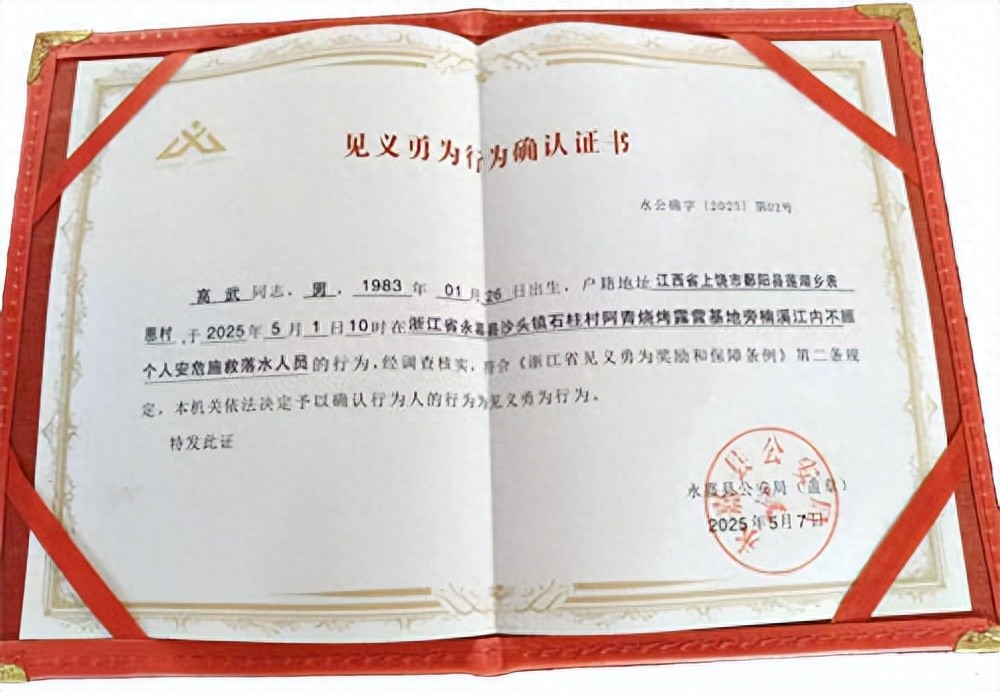 见义勇为行为确认证书
永公确字〔2025〕第02号
高武同志，男，1983年01月26日出生，户籍地址江西省上饶市鄱阳县莲湖乡表
恩村，于2025年5月1日10时在浙江省永嘉县沙头镇石柱村阿青烧烤露营基地旁楠溪江内不顾
个人安危施救落水人员的行为，经调查核实，符合《浙江省见义勇为奖励和保障条例》第二条规
定，本机关依法决定予以确认行为人的行为为见义勇为行为。
特发此证
永嘉县公安局（盖章）
2025年5月7日